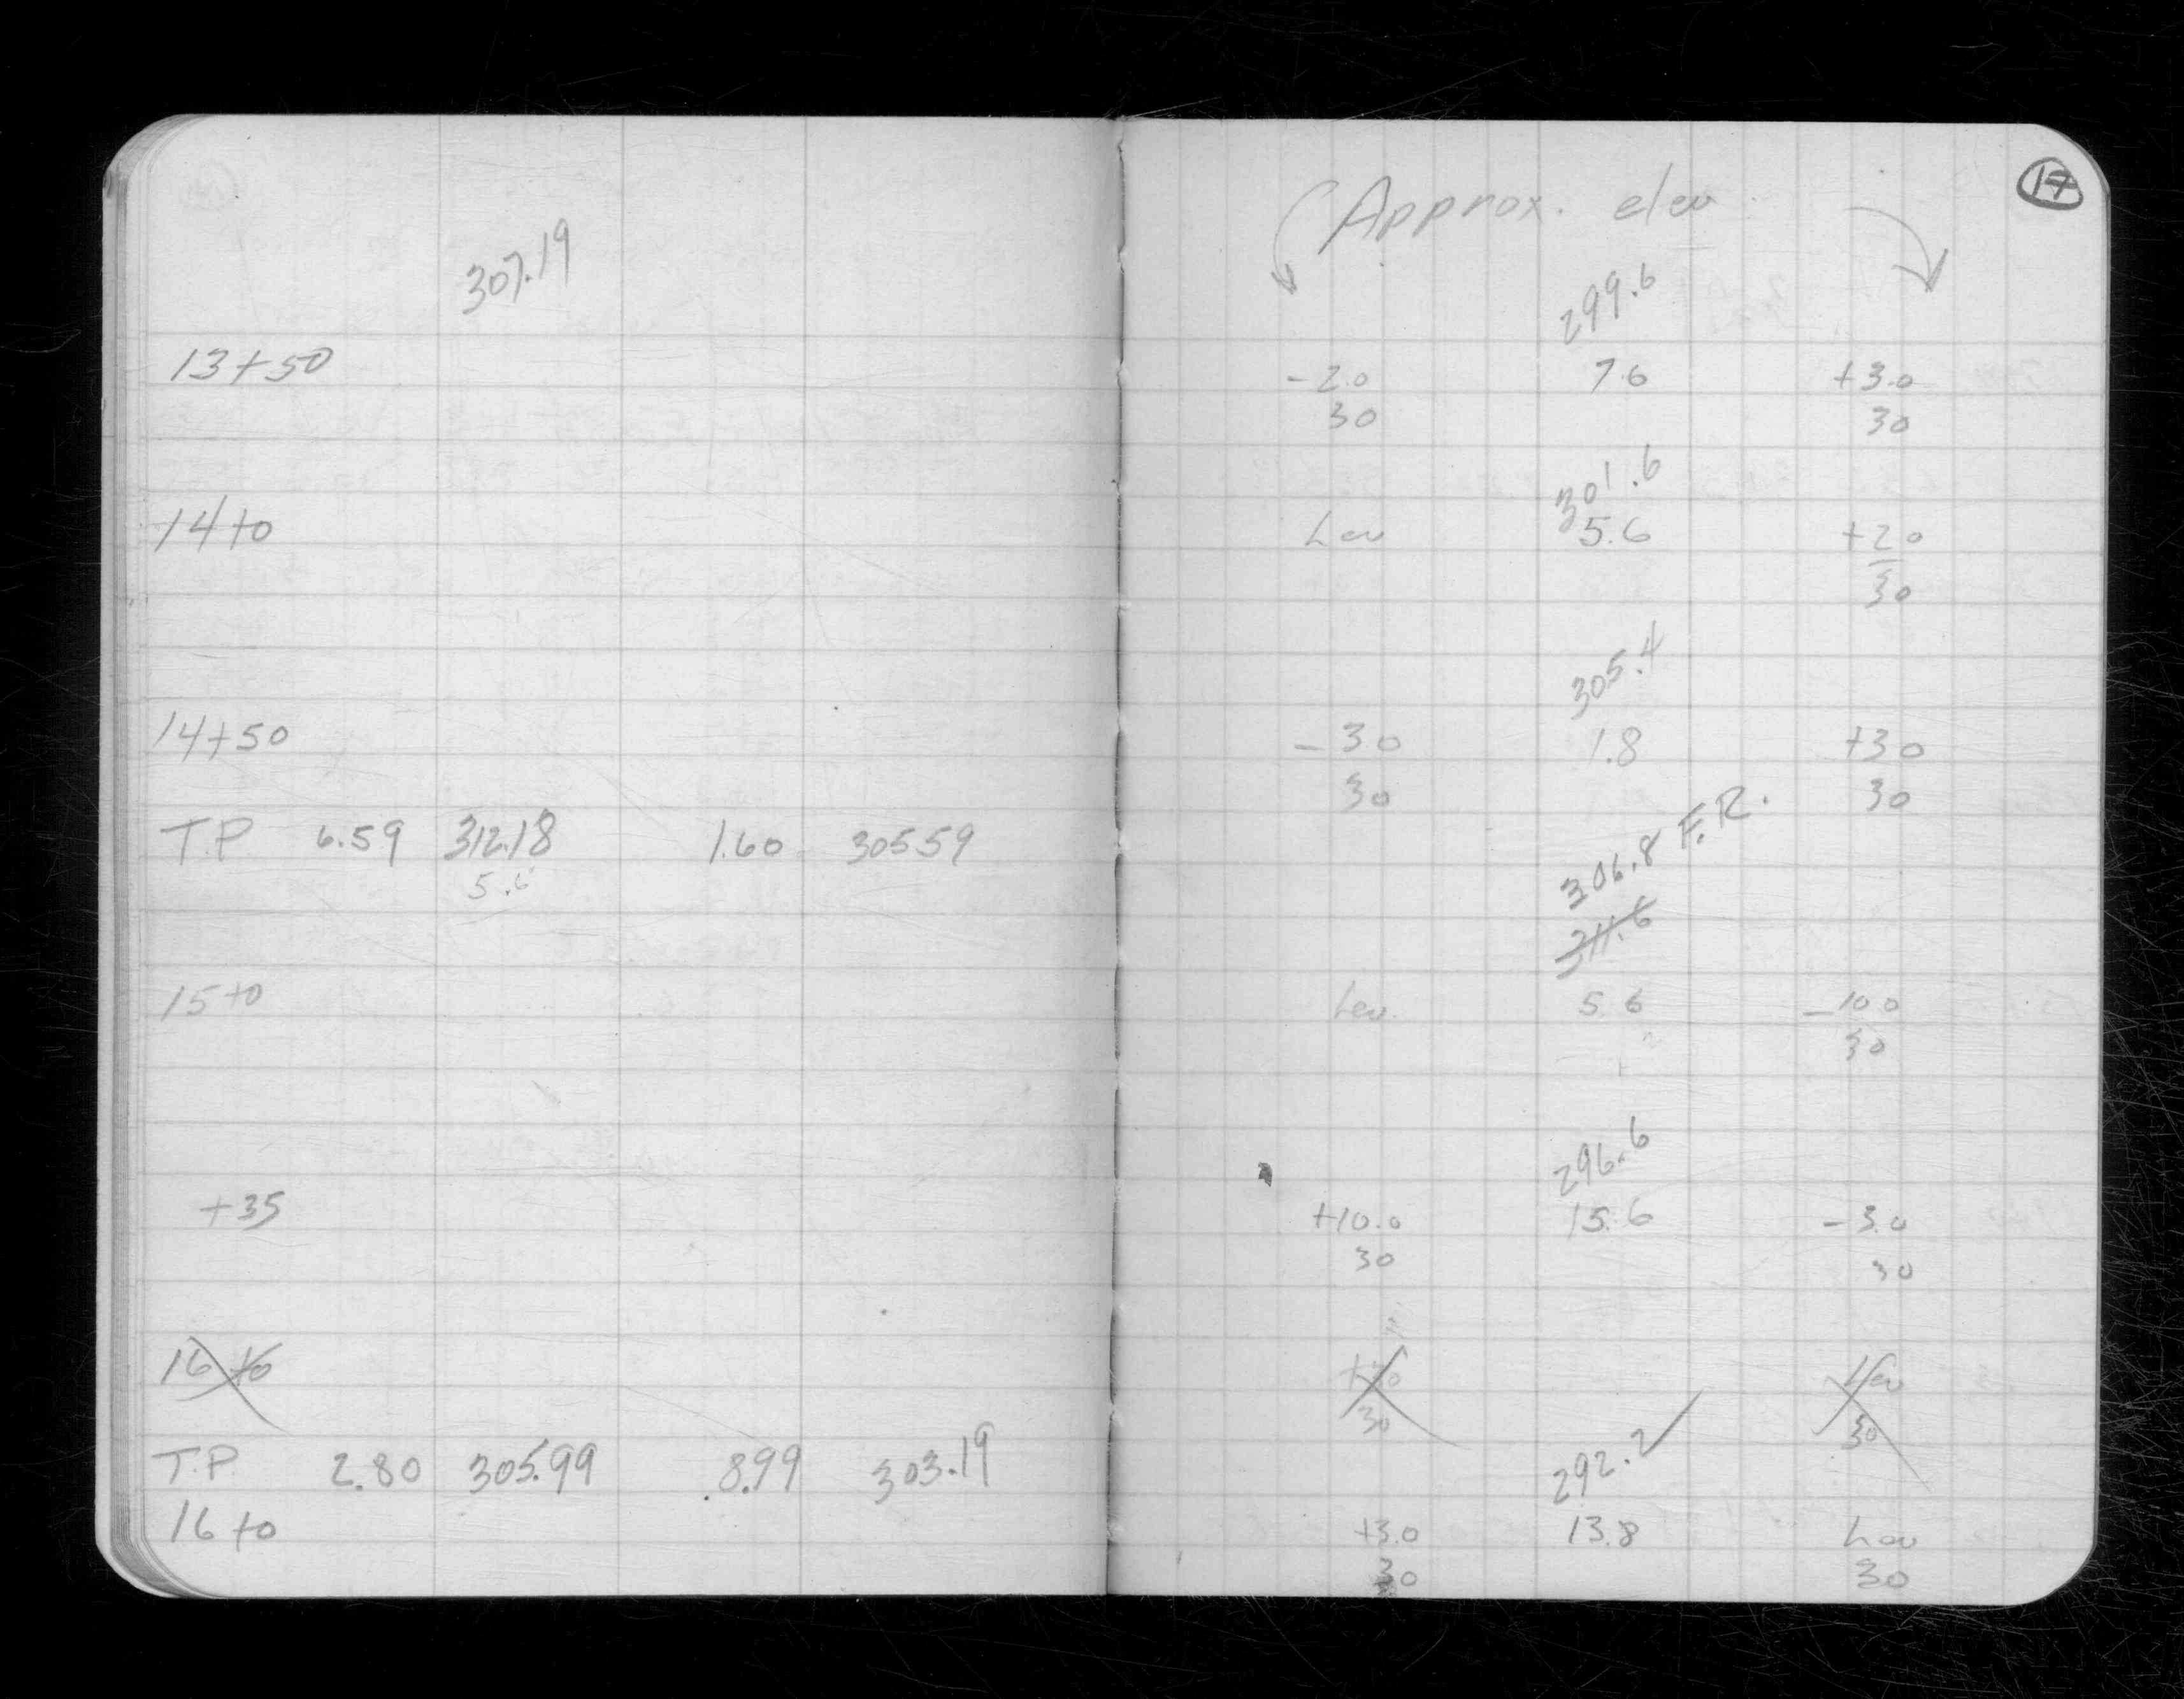 17
Approx. elev
307.19
299.6
13+50 -2.0 7.6 +3.0
30 30
301.6
14+0 Lev 5.6 +2.0
30
305.4
14+50 -30 1.8 +30
30 30
T.P 6.59 312.18 1.60 305.59
5.6
306.8 F.R.
311.6
15+0 Lev. 5.6 -10.0
30
296.6
+35 +10.0 15.6 -3.0
30 30
16+0 Lev
30 30
292.2 ✓
T.P 2.80 305.99 8.99 303.19
16+0 +3.0 13.8 Lev
30 30